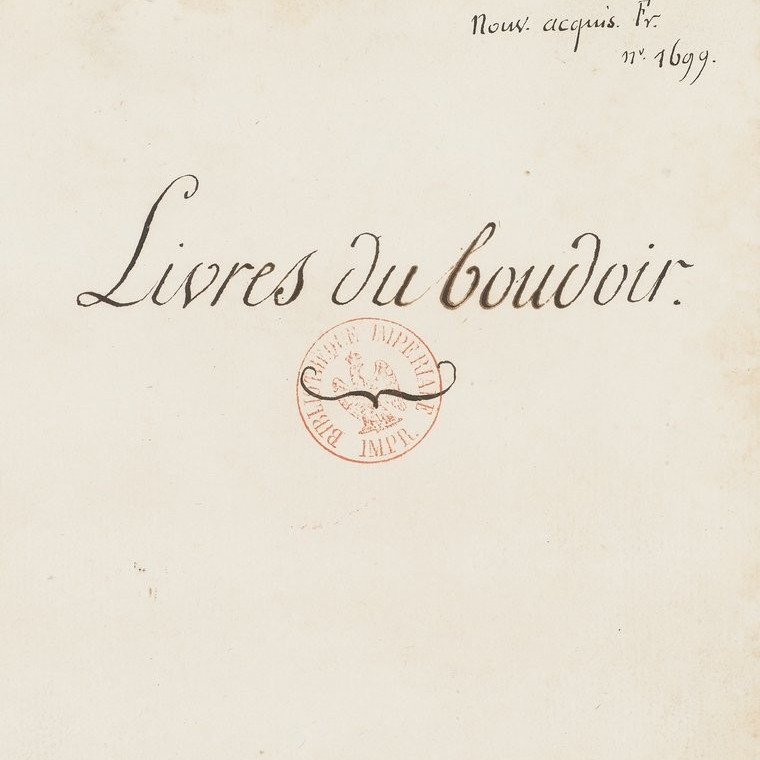 Nouv. acquis. Fr.
nº. 1699.
Livres du boudoir.
BIBLIOTHEQUE IMPERIALE
IMPR.